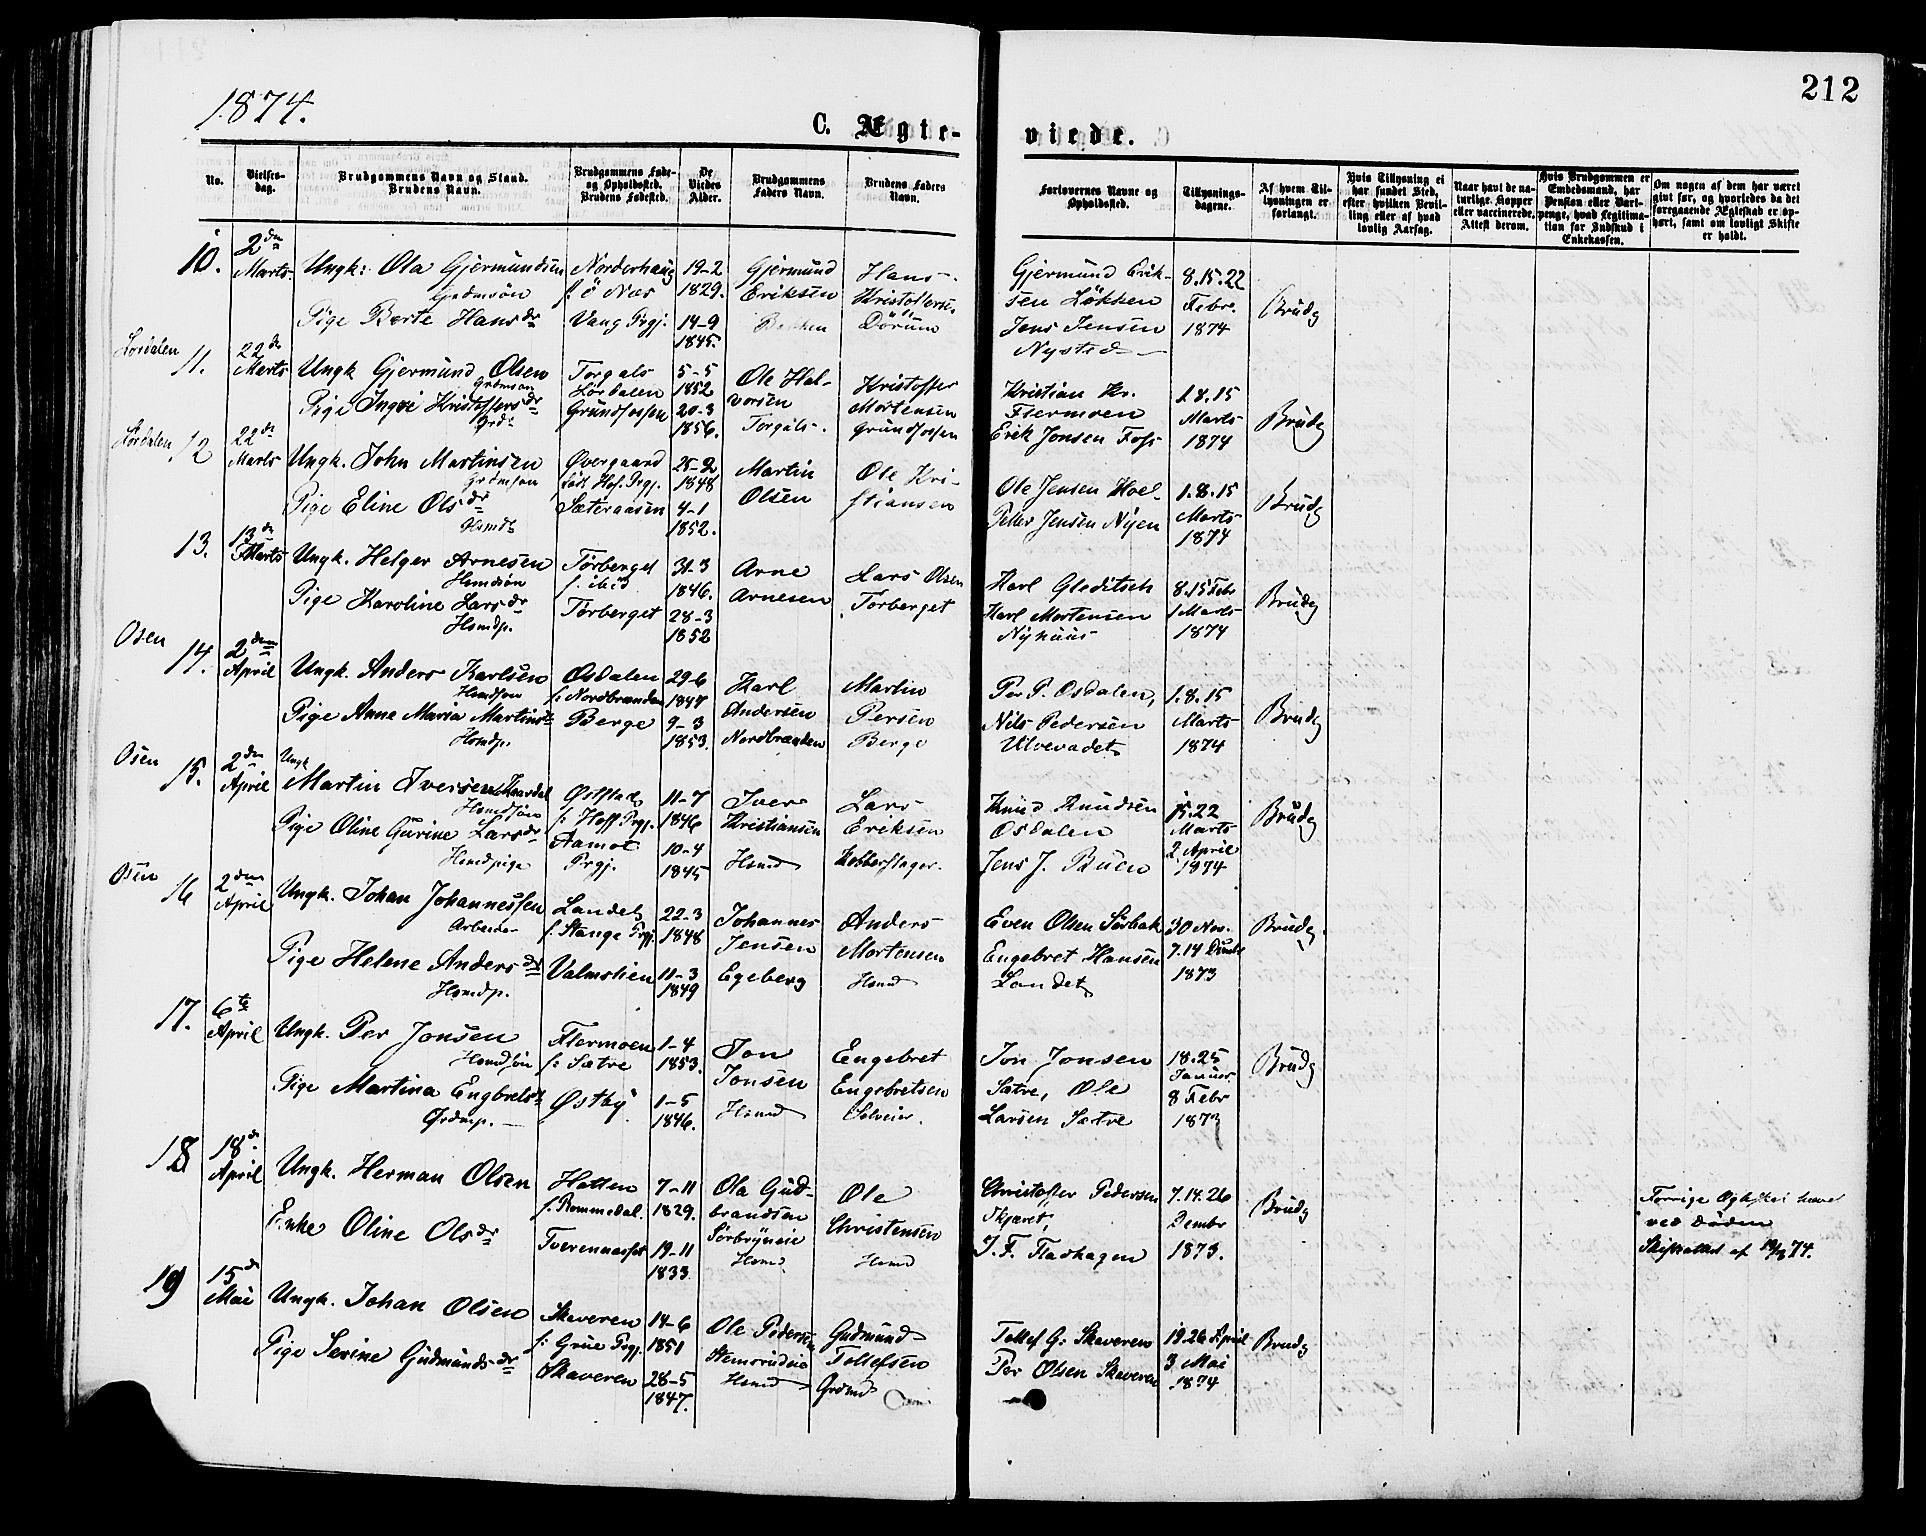 212
1874.
C. Ægte-
viede.
No.
Vielses-
dag.
Brudgommens Navn og Stand.
Brudens Navn.
Brudgommens Føde-
og Opholdssted.
Brudens Fødested.
De
Viedes
Alder.
Brudgommens
Faders Navn.
Brudens Faders
Navn.
Forlovernes Navne og
Opholdssted.
Tillysnings-
dagene.
Af hvem Til-
lysningen er
forlangt.
Hvis Tillysning ei
har fundet Sted,
efter hvilken Bevil-
ling eller af hvad
lovlig Aarsag.
Naar havt de na-
turlige Kopper
eller vaccinerede,
Attest derom.
Hvis Brudgommen er
Embedsmand, har
Pension eller Vart-
penge, hvad Legitima-
tion for Indskud i
Enkekassen.
Om nogen af dem har været
givt før, og hvorledes da det
foregaaende Ægteskab er op-
hørt, samt om lovligt Skifte
er holdt.
10.
2den
Marts
Ungk: Ola Gjermundsen
Grdmsøn
Pige Berte Hansdr
Norderhaug
f: ö Næs
Vang Prgj.
19-2
1829.
14-9
1845.
Gjermund
Eriksen
Bakken
Hans
Kristoffersen
Dørum
Gjermund Erik-
sen Løkken
Jens Jensen
Nysted
8.15.22
Febr.
1874
Brudg
Lørdalen
11.
22de
Marts
Ungk Gjermund Olsen
Grdmsøn
Pige Ingri Kristoffersdr
Grd:
Torgals
Lørdalen
Grundfossen
5-5
1852
20-3
1856.
Ole Hal-
vorsen
Torgals
Kristoffer
Mortensen
Grundfossen
Kristian Kr.
Flermoen
Erik Jonsen Foss
1.8.15
Marts
1874
Brudg
Lørdalen
12
22de
Marts
Ungk. John Martinsen
Grdmsøn
Pige Eline Olsdr
Hsmdt
Øvergaard
født Hof. Prgj.
Sæteraasen
25-2
1848
4-1
1852.
Martin
Olsen
Ole Kri-
stiansen
Ole Jensen Moel
Petter Jensen Nyen
1.8.15
Marts
1874
Brudg
13.
13de
Marts
Ungk. Helger Arnesen
Hsmdsøn
Pige Karoline Larsdr
Hsmdp.
Tørberget
f. ibid
Tørberget
31-3
1846.
28-3
1852
Arne
Arnesen
Lars Olsen
Tørberget
Karl Gleditsch
Karl Mortensen
Nyhuus
8.15 Febr
1 Marts
1874
Brudg
Osen
14.
2den
April
Ungk. Anders Karlsen
Hsmdsøn
Pige Anne Maria Martinsdr
Hsmdp.
Osdalen
f: Nordbrænden
Berge
29-6
1847
9-3
1853.
Karl
Andersen
Nordbrænden
Martin
Persen
Berge
Per P. Osdalen,
Nils Pedersen
Ulvevadet
1.8.15
Marts
1874
Brudg
Osen
15.
2den
April
Ungk
Martin Iversen
Hsmdsøn
Pige Oline Gurine Larsdr
Hsmdpige
f: Hoff Prgj.
Aamot
Prgj.
11-7
1846
10-4
1845
Iver
Kristiansen
Hsmd
Lars
Eriksen
Kobberslager.
Knud Knudsen
Osdalen
Jens J. Buen
15.22
Marts
2 April
1874
Brudg
Osen
16
2den
April
Ungk. Johan Johannessen
Arbeider
Pige Helene Andersdr
Hsmdp.
Landet
f. Stange Prgj.
Valmstien
22-3
1848
11-3
1849
Johannes
Jensen
Egeberg
Anders
Mortensen
Hsmd
Even Olsen Sørbak
Engebret Hansen
Landet
30 Nov.
7.14 Decbr
1873
Brudg.
17.
6te
April
Ungk. Per Jonsen
Hsmdsøn
Pige Martina Engbretsdr
Grdmp.
Flermoen
f: Sætre
Østby
1-4
1853.
1-5
1846.
Jon
Jonsen
Hsmd
Engebret
Engebretsen
Selveier.
Jon Jonsen
Sætre, Ole
Larsen Sætre
18.25
Januar
8 Febr
1873
Brudg
18
18de
April
Ungk. Herman Olsen
Enke Oline Olsdr
Hatten
f: Rommedal.
Tverennæsset
7-11
1829.
19-11
1833.
Ola Gud-
brandsen
Sørbryneie
Hsmd
Ole
Christensen
Hsmd
Christoffer Pedersen
Skjæret,
J. F. Fladhagen
7.14.26
Decmbr
1873.
Brudg
Forrige Ægteskab hævet
ved Døden
Skifteattest af 19/3 74.
19
15de
Mai
Ungk. Johan Olsen
Pige Serine Gudmundsdr
Skaveren
f: Grue Prgj.
Skaveren
14-6
1851
28-5
1847.
Ole Pedersen
Stemsrudeie
Hsmd
Gudmund
Tollefsen
Grdmd
Tollef G: Skaveren
Per Olsen Skaveren
19.26 April
3 Mai
1874
Brudg